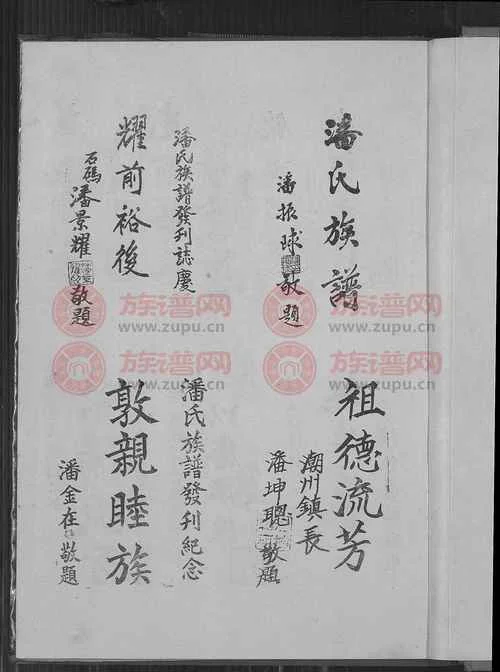 潘氏族譜
潘振球敬題
潘氏族譜發刊誌慶
耀前裕後
石碼潘景耀敬題
祖德流芳
潮州鎮長
潘坤聰敬題
潘氏族譜發刊紀念
敦親睦族
潘金在敬題
族谱网
www.zupu.cn
族谱网
www.zupu.cn
族谱网
www.zupu.cn
族谱网
www.zupu.cn